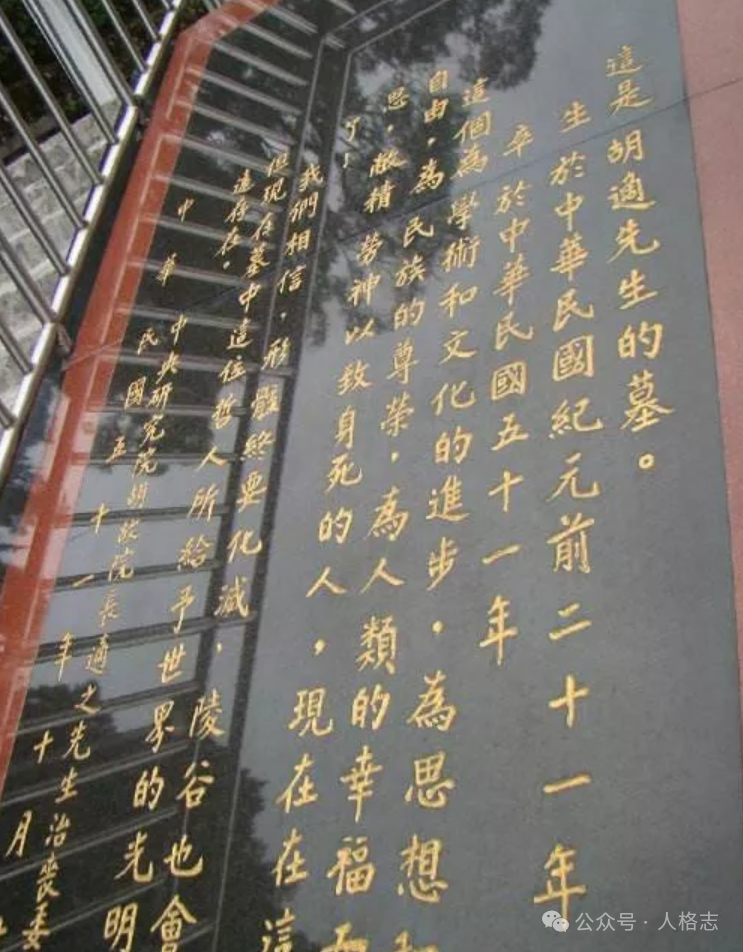 這是胡適先生的墓。
生於中華民國紀元前二十一年
卒於中華民國五十一年
這個為學術和文化的進步，為思想和
自由，為民族的尊榮，為人類的幸福和
思，敝精勞神以致身死的人，現在在這
了！
我們相信，形骸終要化滅，陵谷也會
但現在墓中這位哲人所給予世界的光明
遠存在。
中央研究院胡故院長適之先生治喪委
中華民國五十一年十月
公众号·人格志